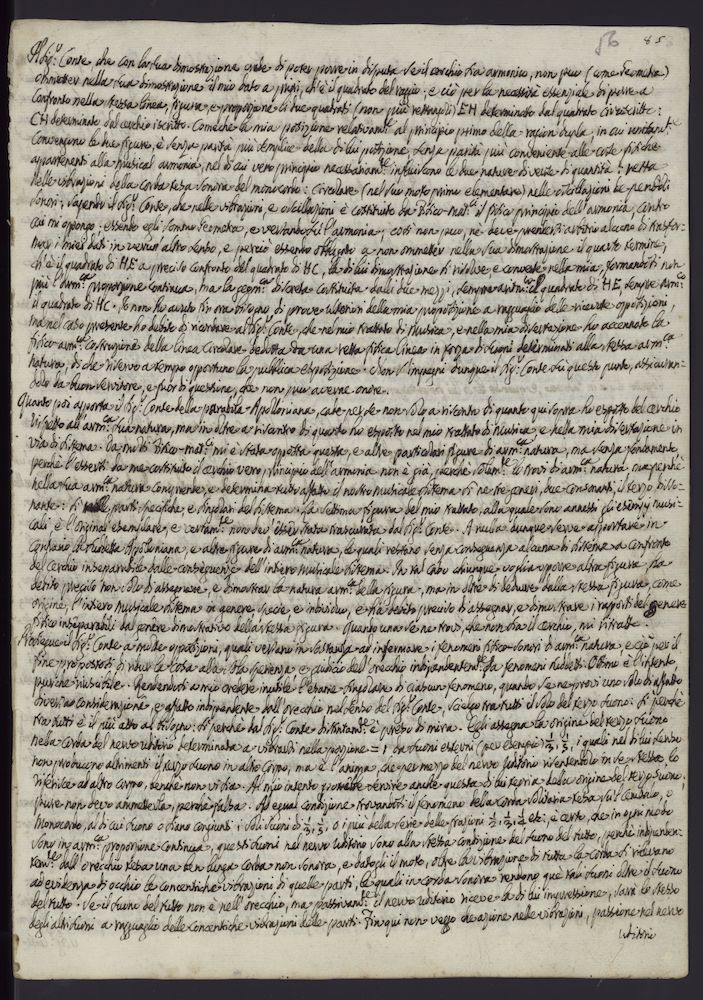 56 85
Il Sig.r Conte che con la sua dimostrazione crede di poter porre in disputa se il cerchio sia armonico, non può (come Geometra)
ommetter nella sua dimostrazione il mio dato a priori, ch'è il quadrato del raggio; e ciò per la necessità essenziale di porre a
confronto nella stessa linea, figura, e proporzione li due quadrati (non più rettangoli) EH determinato dal quadrato circoscritto:
CH determinato dal cerchio iscritto. Comechè la mia posizione al principio primo della ragion dupla, in cui
convengono le due figure, è senza parità più semplice della di lui posizione, senza parità più conveniente alle cose fisiche
appartenenti alla musical armonia, nel di cui vero principio influiscono le due nature di retta
nelle vibrazioni della corda tesa sonora del monocordo: circolare (nel suo moto primo elementare) nelle oscillazioni de pendoli
sonori; sapendo il Sig.r Conte, che nelle vibrazioni, e oscillazioni è costituito da il fisico principio dell'armonia, contro
cui mi oppongo; essendo egli sommo Geometra, e versando sù l'armonia; così non può, nè deve prendersi arbitrio alcuno di trasfor-
mar i miei dati in verun altro senso, e perciò essendo obbligato a non ommetter nella sua dimostrazione il quarto termine,
ch'è il quadrato di HE a preciso confronto del quadrato di HC, la di lui dimostrazione si risolve, e converte nella mia, formandosi non
più l'arm.ca proporzione continua, ma la geom.ca discreta costituita dalli due mezzi, sempre aritm.co il quadrato di HE, sempre arm.co
il quadrato di HC. Io non ho avuto fin ora bisogno di prove ulteriori della mia proposizione a ragguaglio delle ricevute opposizioni;
ma nel caso presente ho debito di ricordare al Sig.r Conte, che nel mio trattato di Musica, e nella mia dissertazione ho accennato la
fisico-arm.ca costruzione della linea circolare dedotta da una retta fisica linea in forza di suoni determinati alla stessa arm.ca
natura, di che riservo a tempo opportuno la pubblica esposizione. Non s'impegni dunque il Sig.r Conte sù questo punto, assicuran-
dolo da buon servitore, e fuor di questione, che non può averne onore.
Quanto poi apporta il Sig.r Conte della parabola Apolloniana, cade da se non solo a riscontro di quanto quì sopra ho esposto del cerchio
rispetto all'arm.ca sua natura, ma in oltre a riscontro di quanto ho esposto nel mio trattato di Musica, e nella mia dissertazione in
via di sistema. Da molti fisico-mat.ci mi è stata opposta questa, e altre particolari figure di arm.ca natura, ma senza fondamento,
perchè l'essersi da me costituito il cerchio vero principio dell'armonia non è già, perchè si trovi di arm.ca natura, ma perchè
nella sua arm.ca natura comprende, e determina tutto affatto il nostro musicale sistema di ne tre generi, due consonanti, il terzo disso-
nante: di parti specifiche, e singolari del sistema. La ultima figura del mio trattato, alla quale sono annessi gli esempj musi-
cali è l'original esemplare, e certam.te non dev'essere stata trascurata dal Sig.r Conte. A nulla dunque serve apportare in
contrario la suddetta Apolloniana, e altre figure di arm.ca natura, le quali restino senza conseguenza alcuna di sistema a confronto
del cerchio inseparabile dalle conseguenze dell'intero musicale sistema. In tal caso chiunque voglia opporre altra figura, ha
debito preciso non solo di assegnare, e dimostrar la natura arm.ca della figura, ma in oltre di dedurre dalla stessa figura, come
origine, l'intiero musicale sistema in genere, specie, e individuo, e sia debito preciso di assegnar, e dimostrare i rapporti del genere
fisico inseparabili dal genere dimostrativo della stessa figura. Quando una se ne trovi, che non sia il cerchio, mi ritratto.
Prosegue il Sig.r Conte a molte opposizioni, quali versano in sostanza ad infermare i fenomeni fisico-sonori di arm.ca natura, e ciò per il
fine propostosi di ridur la cosa alla sola sperienza, e giudicio dell'orecchio da fenomeni suddetti. Ottimo è l'intento,
purchè riuscibile. Rendendosi a mio credere inutile l'esame singolare di ciascun fenomeno, quando se ne trovi uno solo di assoluta
diversa considerazione, e affatto indipendente dall'orecchio nel senso del Sig.r Conte, scielgo tra tutti il solo del terzo suono: si perchè
tra tutti è il più atto al bisogno: si perchè dal Sig.r Conte è preso di mira. Egli assegna la origine del terzo suono
nella corda del nervo uditivo determinata a vibrarsi nella porzione = 1 da suoni esterni (per esempio) 1/3, 1/5, i quali nel di lui senso
non producono altrimenti il terzo suono in altro corpo, ma è l'anima, che per mezzo del nervo uditorio risentendolo in se stessa, lo
riferisce ad altro corpo, benchè non vibra. Al mio intento potrebbe servire anche questa di lui teoria della origine del terzo suono,
pure non devo ammetterla, perchè falsa. Ad egual condizione trovandosi il fenomeno della corda solitaria tesa sul Cembalo, o
Monocordo, al di cui suono o siano congiunti i soli suoni di 1/3, 1/5, o i più della serie delle frazioni 1/2, 1/3, 1/4 etc; è certo, che in ogni modo
sono in arm.ca proporzione continua, questi suoni nel nervo uditorio sono alla stessa condizione del suono del tutto, perchè indipenden-
tem.te dall'orecchio tesa una ben lunga corda non sonora, e datogli il moto, oltre la vibrazione di tutta la corda si rilevano
ad evidenza di occhio le concentriche vibrazioni di quelle parti, le quali in corda sonora rendono que tali suoni oltre il suono
del tutto. Se il suono del tutto non è nell'orecchio, ma passivam.te il nervo uditorio riceve la di lui impressione, sarà lo stesso
degli altri suoni a ragguaglio delle concentriche vibrazioni delle parti. Fin qui non veggo che azione nelle vibrazioni, passione nel nervo
uditorio